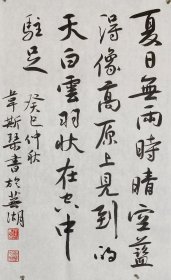 夏日無雨時晴空藍
得像高原上見到的
天白雲羽狀在空中
駐足
癸巳仲秋
韋斯琴書於蕪湖